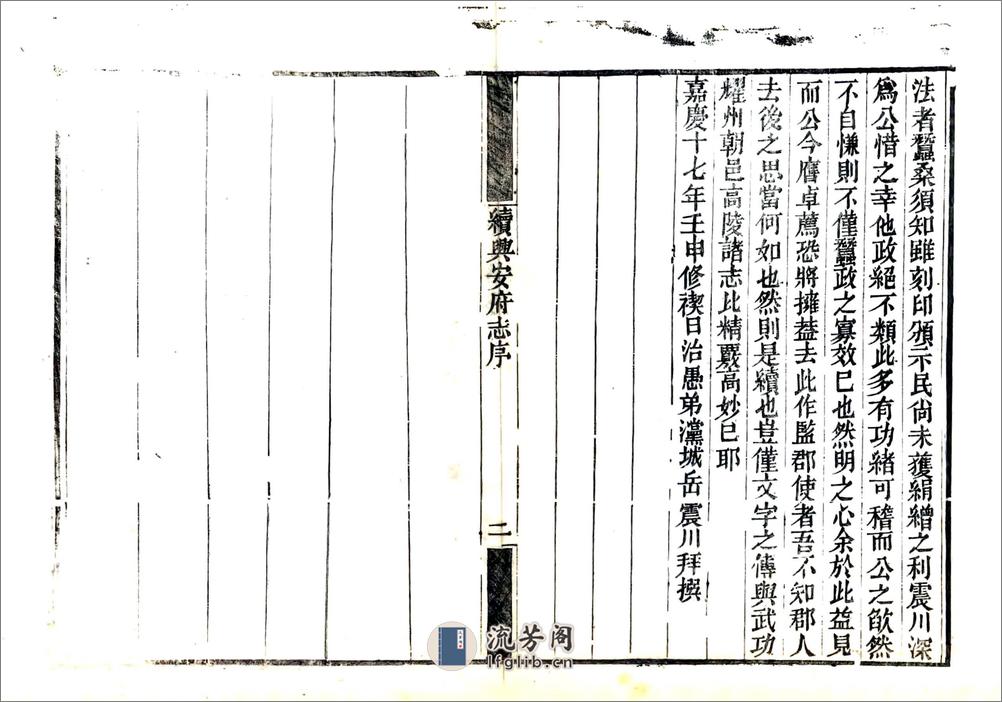 法者蠶桑須知雖刻印頒示民尚未獲絹繒之利震川深
爲公惜之幸他政絕不類此多有功緒可稽而公之欿然
不自慊則不僅蠶政之寡效已也然明之心余於此益見
而公今膺卓薦恐將擁益去此作監郡使者吾不知郡人
去後之思當何如也然則是續也豈僅文字之傳與武功
耀州朝邑高陵諸志比精覈高妙已耶
嘉慶十七年壬申修禊日治愚弟灙城岳震川拜撰
續興安府志序
二
流芳阁
lfglib.cn